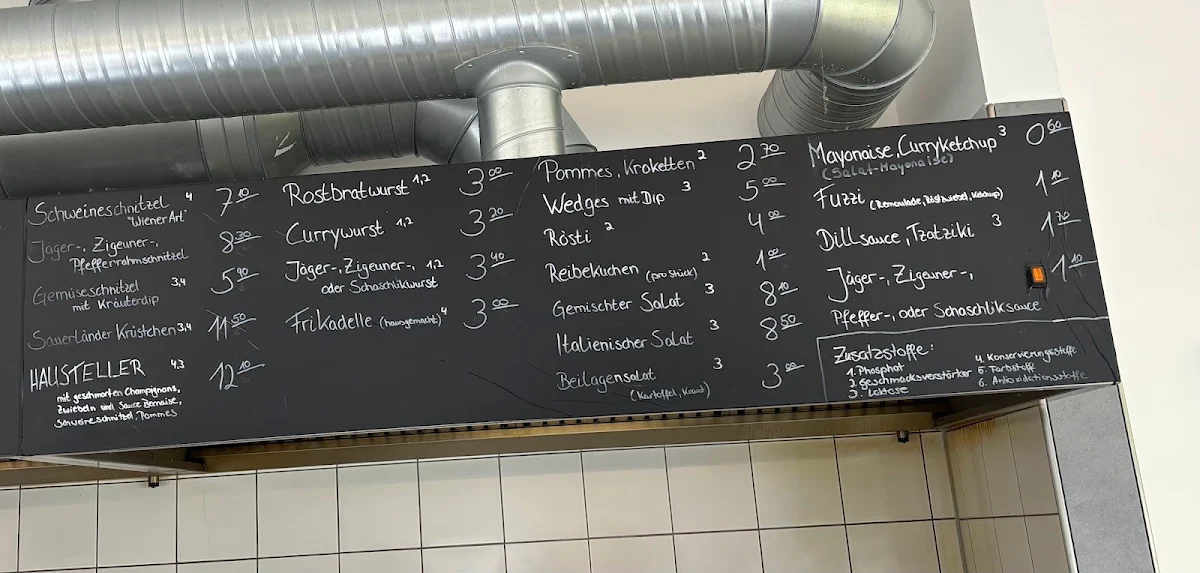 Schweineschnitzel 4 7,10
"Wiener Art"
Jäger-, Zigeuner-, 8,30
Pfefferrahmschnitzel
Gemüseschnitzel 3,4 5,90
mit Kräuterdip
Sauerländer Krüstchen 3,4 11,50
HAUSTELLER 4,3 12,10
mit geschmorten Champignons,
Zwiebeln und Sauce Bernaise,
Schweineschnitzel, Pommes
Rostbratwurst 1,2 3,00
Currywurst 1,2 3,20
Jäger-, Zigeuner-, 1,2 3,40
oder Schaschlikwurst
Frikadelle (hausgemacht) 4 3,00
Pommes, Kroketten 2 2,70
Wedges mit Dip 3 5,00
Rösti 2 4,00
Reibekuchen (pro Stück) 2 1,00
Gemischter Salat 3 8,10
Italienischer Salat 3 8,50
Beilagensalat 3 3,00
(Kartoffel, Kraut)
Mayonaise, Curryketchup 3 0,60
(Salat-Mayonaise)
Fuzzi (Remoulade, Röstzwiebel, Ketchup) 1,10
Dillsauce, Tzatziki 3 1,70
Jäger-, Zigeuner-, 1,10
Pfeffer-, oder Schaschliksauce
Zusatzstoffe:
1. Phosphat
2. Geschmacksverstärker
3. Laktose
4. Konservierungsstoffe
5. Farbstoff
6. Antioxidationsstoffe